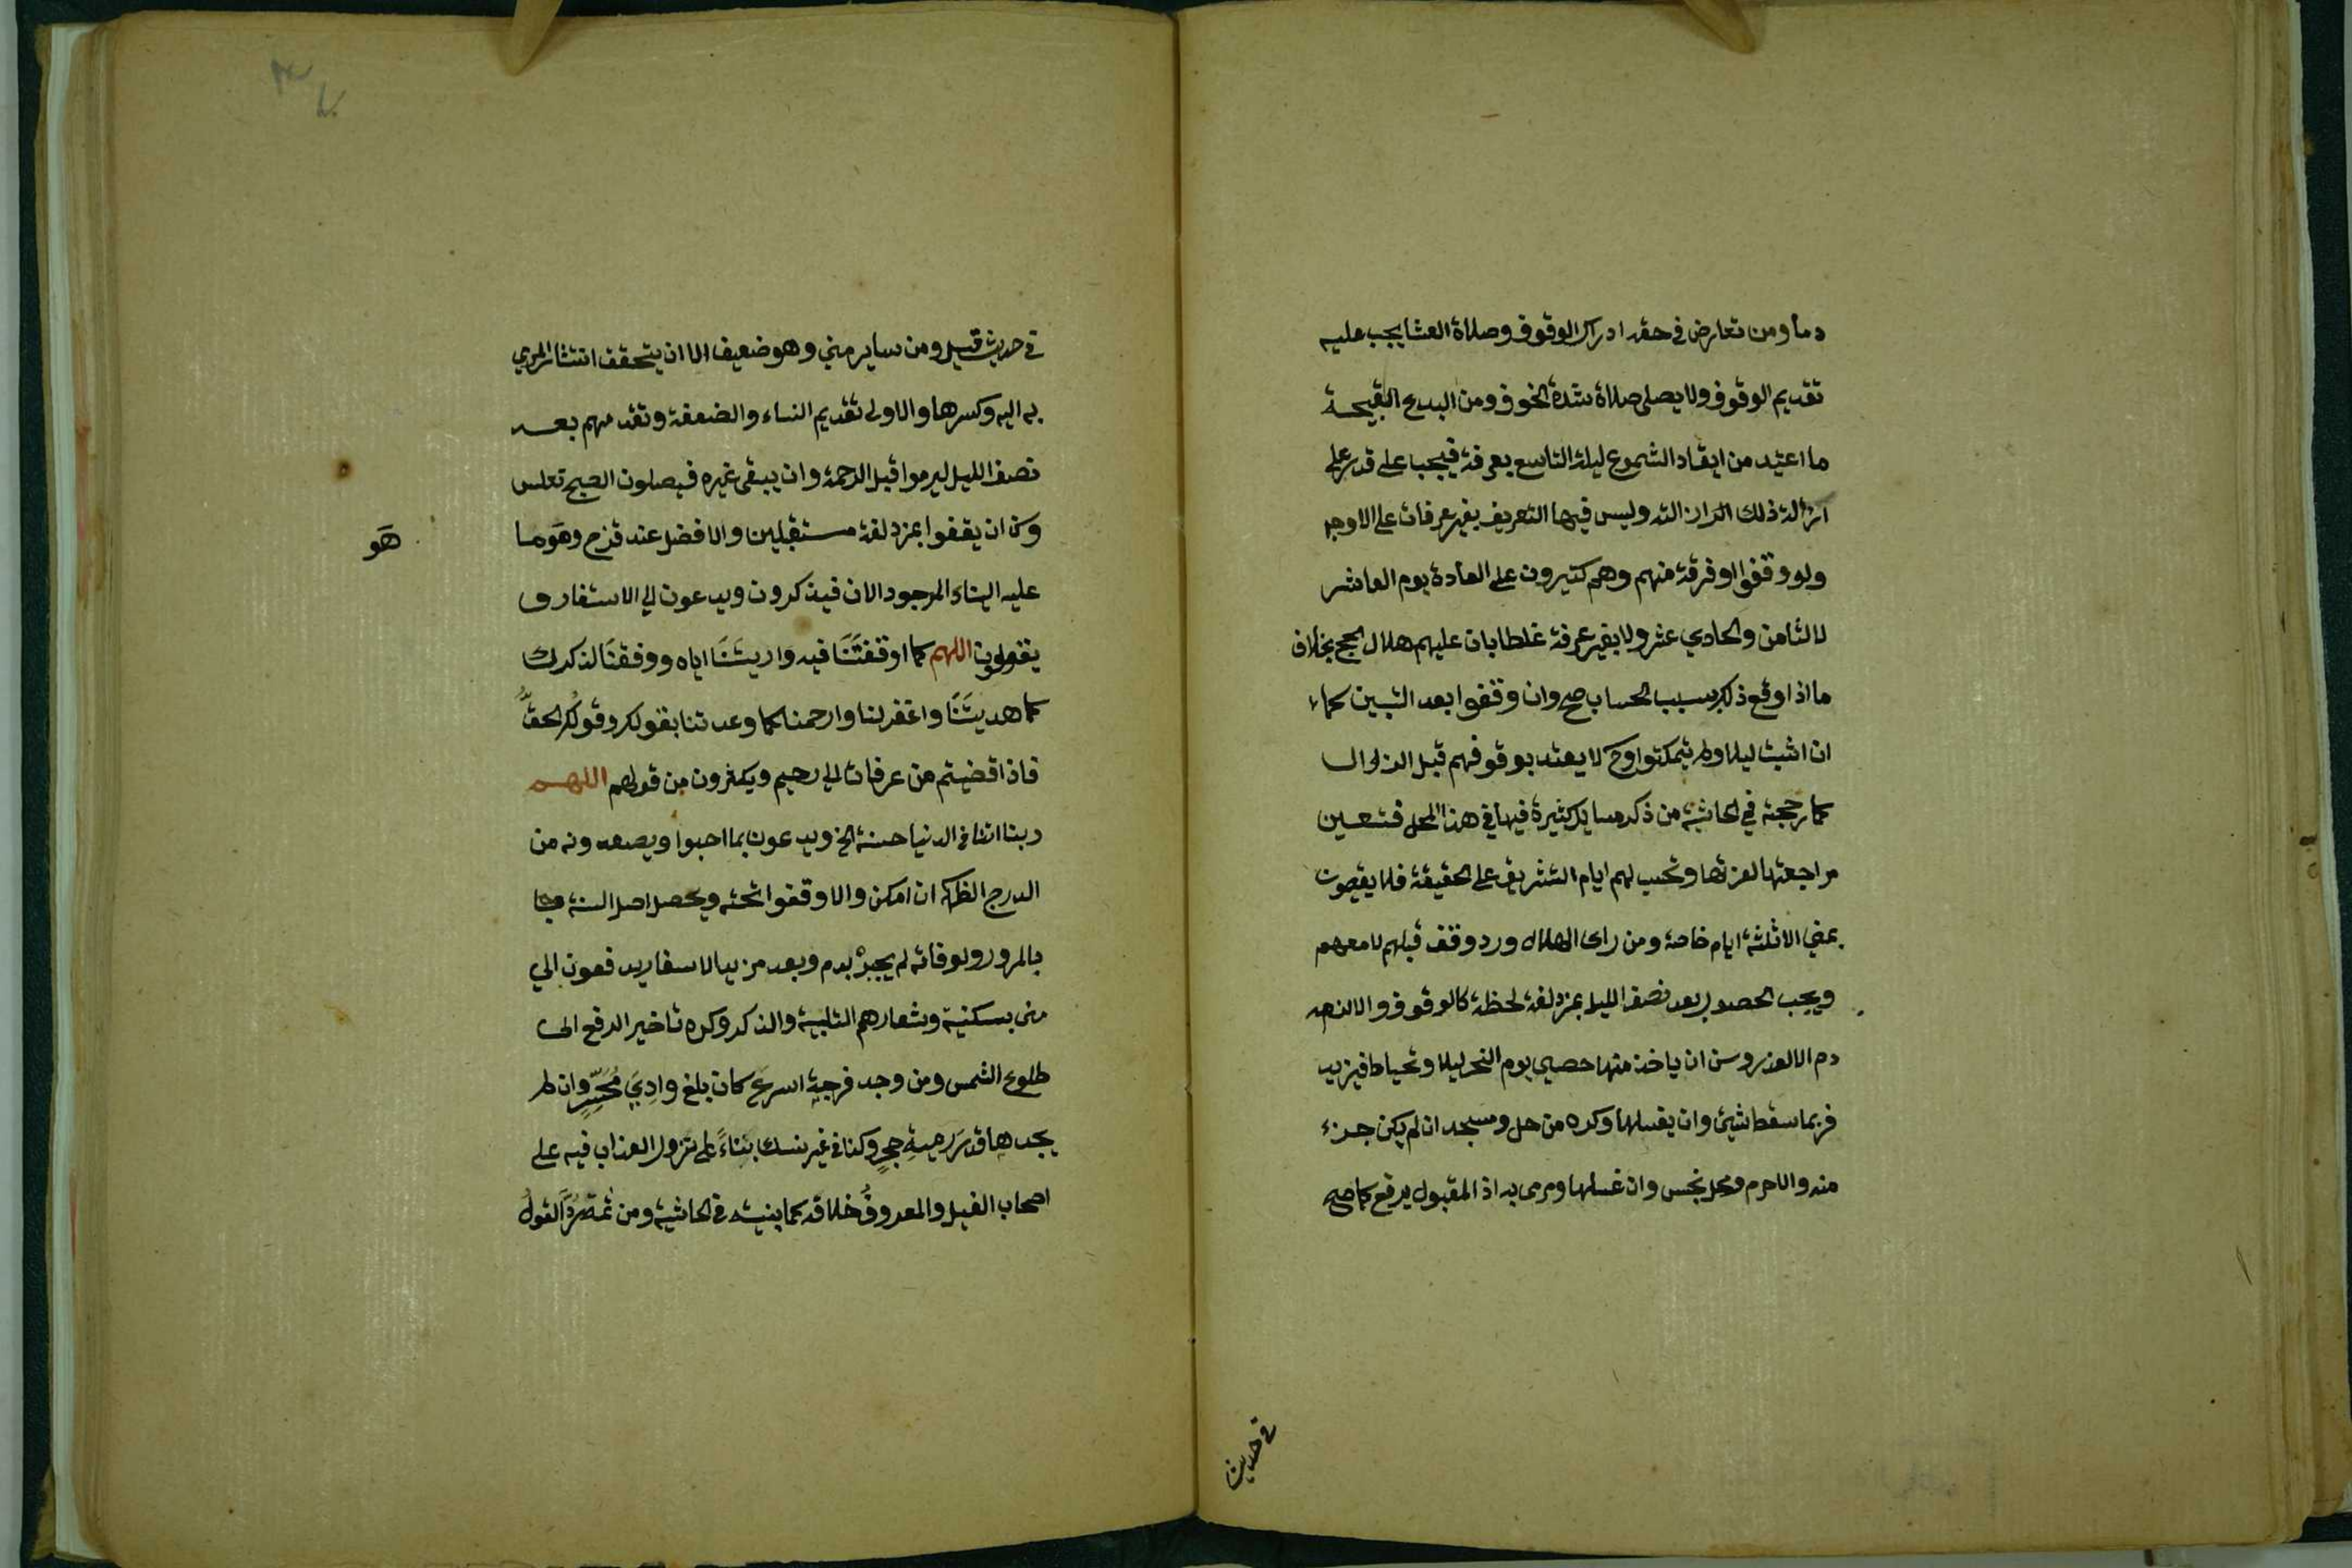 دما ومن تعارض في حقه ادراك الوقوف وصلاة العشا يجب عليه
تقديم الوقوف ولا يصلي صلاة شدة الخوف ومن البدع القبيحة
ما اعتيد من ايقاد الشموع ليلة التاسع بعرفة فيجب على قدر على
ازالة ذلك ازالته وليس فيها التعريف بغير عرفات على الاوجه
ولو وقفوا او فرقة منهم وهم كثيرون على العادة يوم العاشر
لا الثامن والحادي عشر ولا بغير عرفة غلطا بان عليهم هلال الحج بخلاف
ما اذا وقع ذلك بسبب الحساب صح وان وقفوا بعد التبين كما
ان اثبت ليلا ولم يتمكنوا وح لا يعتد بوقوفهم قبل الزوال
كما رجحته في الحاشية من ذكر مسايل كثيرة فيها في هذا المحل فتعين
مراجعتها لعزتها وتحسب لهم ايام التشريق على الحقيقة فلا يقيمون
بمنى الا ثلثة ايام خاصة ومن راى الهلال ورد وقف قبلهم لا معهم
ويجب الحصول بعد نصف الليل بمزدلفة لحظة كالوقوف والا لزمه
دم الا لعذر وسن ان ياخذ منها حصي يوم النحر ليلا ويحتاط فيزيد
فربما سقط شيئ وان يغسلها وكره من حل ومسجد ان لم يكن جزء
منه والا حرم ومحل نجس وان غسلها ومرمى به اذ المقبول يرفع كما صح
في حديث
في حديث قيل ومن ساير منى وهو ضعيف الا ان يتحقق انتثار المرمي
به اليه وكسرها والاولى تقديم النساء والضعفة وتقدمهم بعد
نصف الليل ليرموا قبل الزحمة وان يبقى غيره فيصلون الصبح تغلس
وسن ان يقفوا بمزدلفة مستقبلين والافضل عند قزح وهو ما
هو
عليه البناء الموجود الان فيذكرون ويدعون الى الاسفار و
يقولون اللهم كما اوقفتنا فيه واريتنا اياه ووفقنا لذكرك
كما هديتنا واغفر لنا وارحمنا كما وعدتنا بقولك وقولك الحق
فاذا قضيتم من عرفات الى رحيم ويكثرون من قولهم اللهم
ربنا اتنا في الدنيا حسنة الخ ويدعون بما احبوا ويصعدونه من
الدرج الظاهر ان امكن والا وقفوا تحته ويحصل اصل السنة
بالمرور ولو فاته لم يجبر بدم وبعد مزيد الاسفار يدفعون الى
منى بسكينة وشعارهم التلبية والذكر وكره تاخير الدفع الى
طلوع الشمس ومن وجد فرجة اسرع كان بلغ وادي محسر وان لم
يجدها قدر رمية حجر وكذا في غير نسك بناء على نزول العذاب فيه على
اصحاب الفيل والمعروف خلافه كما بينته في الحاشية ومن ثمة القول